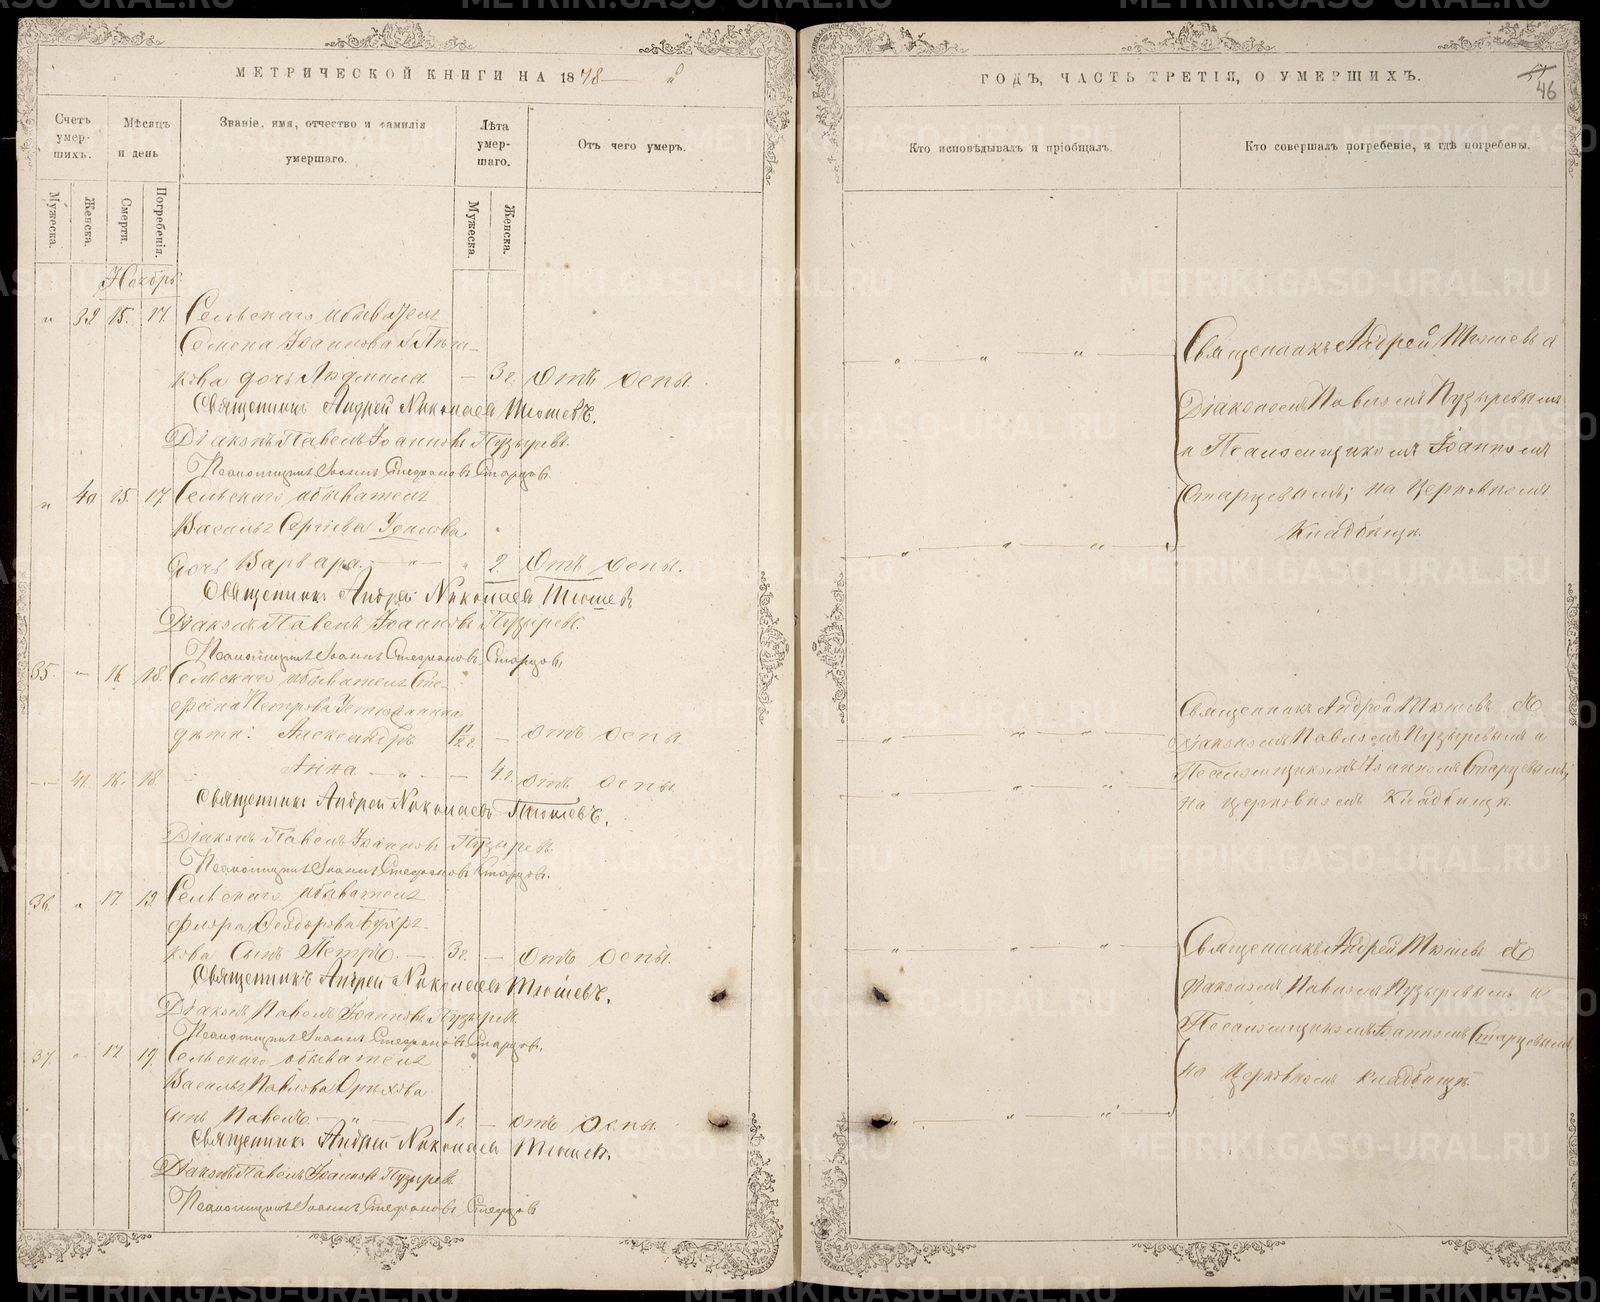 МЕТРИЧЕСКОЙ КНИГИ НА 1878
Счетъ умершихъ.
Мѣсяцъ и день
Званіе, имя, отчество и фамилія умершаго.
Лѣта умершаго.
Отъ чего умеръ.
Мужеска.
Женска.
Смерти.
Погребенія.
Мужеска.
Женска.
Ноябрь
" 39 15. 17. Сельскаго обывателя
Семена Іоаннова
кова дочь Людмила — 3 г. отъ оспы.
Священникъ Андрей Николаевъ Тюшевъ.
Діаконъ Павелъ Іоанновъ Пузыревъ.
Псаломщикъ Іоаннъ Стефановъ Старцовъ.
" 40 15. 17. Сельскаго обывателя
Василья Сергіева
дочь Варвара — " — " 2 отъ оспы.
Священникъ Андрей Николаевъ Тюшевъ
Діаконъ Павелъ Іоанновъ Пузыревъ.
Псаломщикъ Іоаннъ Стефановъ Старцовъ.
35. — 16. 18. Сельскаго обывателя Сте-
фана Петрова Устюжанина
дѣти: Александръ 1/2 г. — отъ оспы
— 41. 16. 18. Анна — " — — 4 г. отъ оспы.
Священникъ Андрей Николаевъ Тюшевъ.
Діаконъ Павелъ Іоанновъ Пузыревъ.
Псаломщикъ Іоаннъ Стефановъ Старцовъ.
36. " 17 19 Сельскаго обывателя
Флора Ѳеодорова
кова сынъ Петръ. — 3 г. — отъ оспы.
Священникъ Андрей Николаевъ Тюшевъ.
Діаконъ Павелъ Іоанновъ Пузыревъ
Псаломщикъ Іоаннъ Стефановъ Старцовъ.
37. " 17 19. Сельскаго обывателя
Василья Павлова Орѣхова
сынъ Павелъ — " — 1 г. — отъ оспы.
Священникъ Андрей Николаевъ Тюшевъ.
Діаконъ Павелъ Іоанновъ Пузыревъ.
Псаломщикъ Іоаннъ Стефановъ Старцовъ
ГОДЪ, ЧАСТЬ ТРЕТІЯ, О УМЕРШИХЪ.
46
Кто исповѣдывалъ и пріобщалъ.
Кто совершалъ погребеніе, и гдѣ погребены.
Священникъ Андрей Тюшевъ съ
Діакономъ Павломъ Пузыревымъ
и Псаломщикомъ Іоанномъ
Старцевымъ; на Церковномъ
Кладбищѣ.
Священникъ Андрей Тюшевъ съ
Діакономъ Павломъ Пузыревымъ и
Псаломщикомъ Іоанномъ Старцевымъ;
на церковномъ Кладбищѣ
Священникъ Андрей Тюшевъ съ
Діакономъ Павломъ Пузыревымъ и
Псаломщикомъ Іоанномъ Старцевымъ
на Церковномъ кладбищѣ.
METRIKI.GASO-URAL.RU